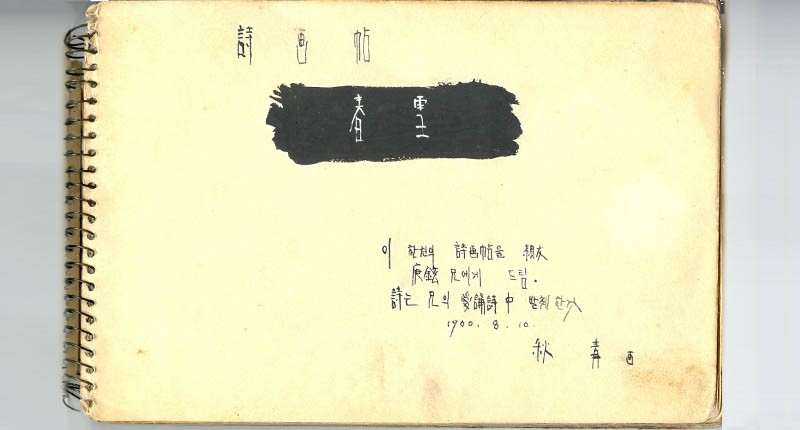 詩 画 帖
春
이 한권의 詩画帖을 親友
庚鉉 兄에게 드림.
詩는 兄의 愛誦詩 中 발췌한 것
1960. 8. 10.
秋 青 画